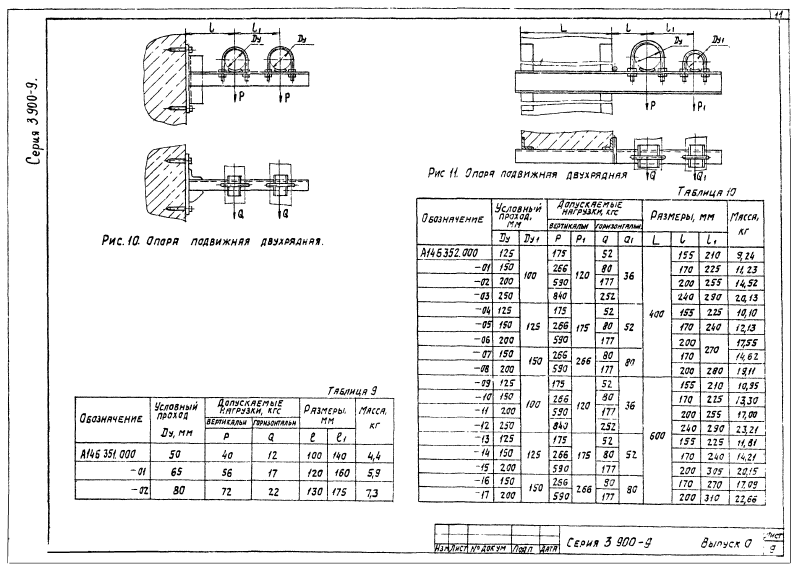 11
Серия 3.900-9.
l l1
Ду Ду
P P
Q Q
Рис. 10. Опора подвижная двухрядная.
L l l1
Ду Ду1
P P1
Q Q1
Рис 11. Опора подвижная двухрядная
Таблица 9
Обозначение Условный проход Ду, мм Допускаемые нагрузки, кгс Размеры, мм Масса, кг
вертикальн горизонтальн
P Q l l1
А14Б 351.000 50 40 12 100 140 4,4
-01 65 56 17 120 160 5,9
-02 80 72 22 130 175 7,3
Таблица 10
Обозначение Условный проход, мм Допускаемые нагрузки, кгс Размеры, мм Масса, кг
вертикальн горизонтальн
Ду Ду1 P P1 Q Q1 L l l1
А14Б 352.000 125 100 175 120 52 36 400 155 210 9,24
-01 150 266 80 170 225 11,23
-02 200 590 177 200 255 14,52
-03 250 840 252 240 290 20,13
-04 125 125 175 175 52 52 155 225 10,10
-05 150 266 80 170 240 12,13
-06 200 590 177 200 270 17,55
-07 150 150 266 266 80 80 170 14,62
-08 200 590 177 200 280 19,11
-09 125 100 175 120 52 36 600 155 210 10,95
-10 150 266 80 170 225 13,30
-11 200 590 177 200 255 17,00
-12 250 840 252 240 290 23,21
-13 125 125 175 175 52 52 155 225 11,81
-14 150 266 80 170 240 14,21
-15 200 590 177 200 305 20,15
-16 150 150 266 266 80 80 170 270 17,09
-17 200 590 177 200 310 22,66
Изм Лист № докум Подп. Дата
Серия 3 900-9
Выпуск 0
Лист
9